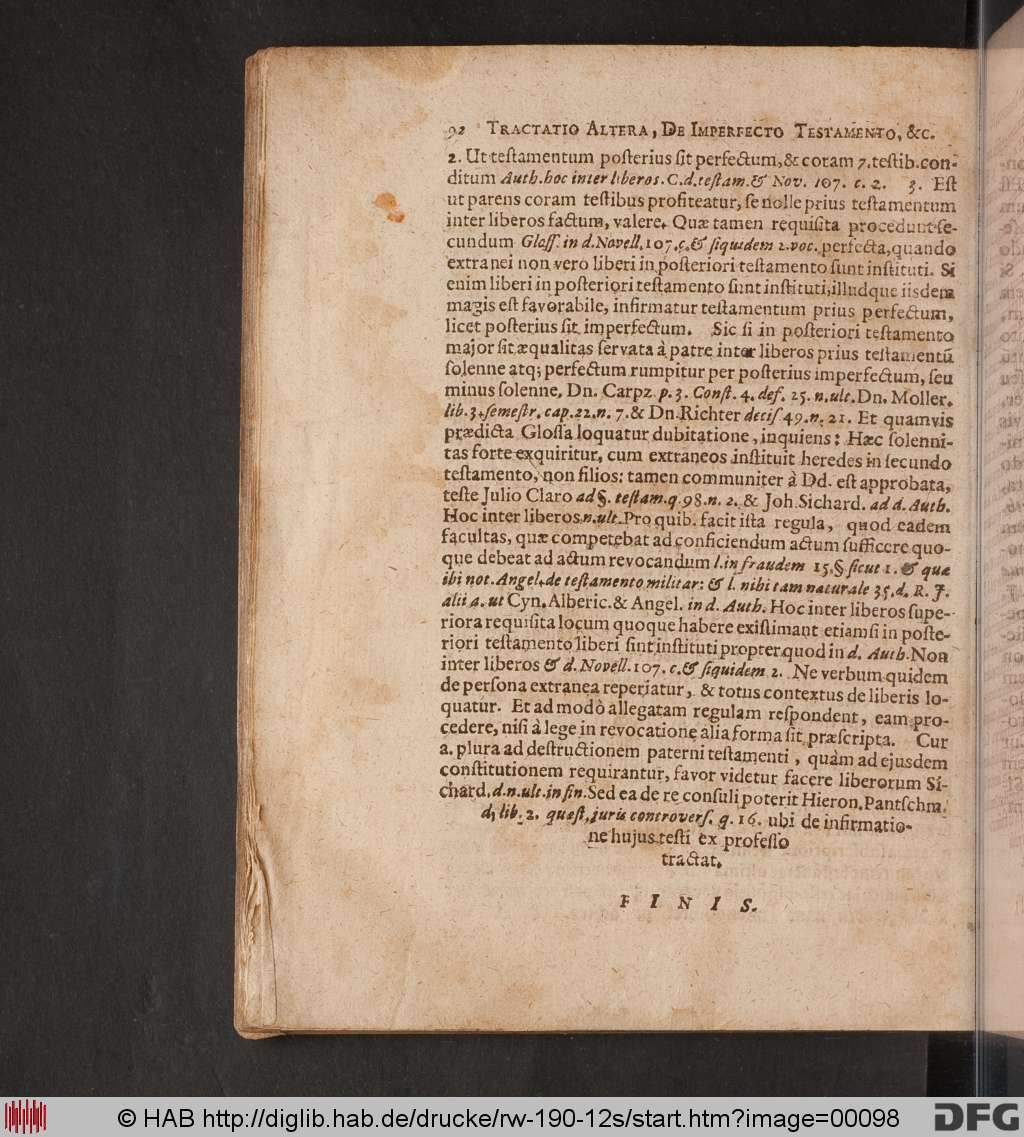 92 TRACTATIO ALTERA, DE IMPERFECTO TESTAMENTO, &c.
2. Ut teſtamentum poſterius ſit perfectum, & coram 7. teſtib. con-
ditum Auth. hoc inter liberos. C. d. teſtam. & Nov. 107. c. 2. 3. Eſt
ut parens coram teſtibus profiteatur, ſe nolle prius teſtamentum
inter liberos factum, valere. Quæ tamen requiſita procedunt ſe-
cundum Gloſſ. in d. Novell. 107. c. & ſiquidem 2. voc. perfecta, quando
extranei non vero liberi in poſteriori teſtamento ſunt inſtituti. Si
enim liberi in poſteriori teſtamento ſunt inſtituti, illudque iisdem
magis eſt favorabile, infirmatur teſtamentum prius perfectum,
licet poſterius ſit imperfectum. Sic ſi in poſteriori teſtamento
major ſit æqualitas ſervata à patre inter liberos prius teſtamentũ
ſolenne atq; perfectum rumpitur per poſterius imperfectum, ſeu
minus ſolenne, Dn. Carpz. p. 3. Conſt. 4. def. 25. n. ult. Dn. Moller.
lib. 3. ſemeſtr. cap. 22. n. 7. & Dn. Richter deciſ. 49. n. 21. Et quamvis
prædicta Gloſſa loquatur dubitatione, inquiens: Hæc ſolenni-
tas forte exquiritur, cum extraneos inſtituit heredes in ſecundo
teſtamento, non filios: tamen communiter à Dd. eſt approbata,
teſte Julio Claro ad §. teſtam. q. 98. n. 2. & Joh. Sichard. ad d. Auth.
Hoc inter liberos n. ult. Pro quib. facit iſta regula, quod eadem
facultas, quæ competebat ad conficiendum actum ſufficere quo-
que debeat ad actum revocandum l. in fraudem 15. § ſicut 1. & quæ
ibi not. Angel. de teſtamento militar: & l. nihi tam naturale 35. d. R. J.
alii a. ut Cyn. Alberic. & Angel. in d. Auth. Hoc inter liberos ſupe-
riora requiſita locum quoque habere exiſtimant etiamſi in poſte-
riori teſtamento liberi ſint inſtituti propter quod in d. Auth. Non
inter liberos & d. Novell. 107. c. & ſiquidem 2. Ne verbum quidem
de perſona extranea reperiatur, & totus contextus de liberis lo-
quatur. Et ad modò allegatam regulam reſpondent, eam pro-
cedere, niſi à lege in revocatione alia forma ſit præſcripta. Cur
a. plura ad deſtructionem paterni teſtamenti, quàm ad ejusdem
conſtitutionem requirantur, favor videtur facere liberorum Si-
chard. d. n. ult. in fin. Sed ea de re conſuli poterit Hieron. Pantſchm.
d. lib. 2. quæſt. juris controverſ. q. 16. ubi de infirmatio-
ne hujus teſti ex profeſſo
tractat.
FINIS.
© HAB http://diglib.hab.de/drucke/rw-190-12s/start.htm?image=00098
DFG